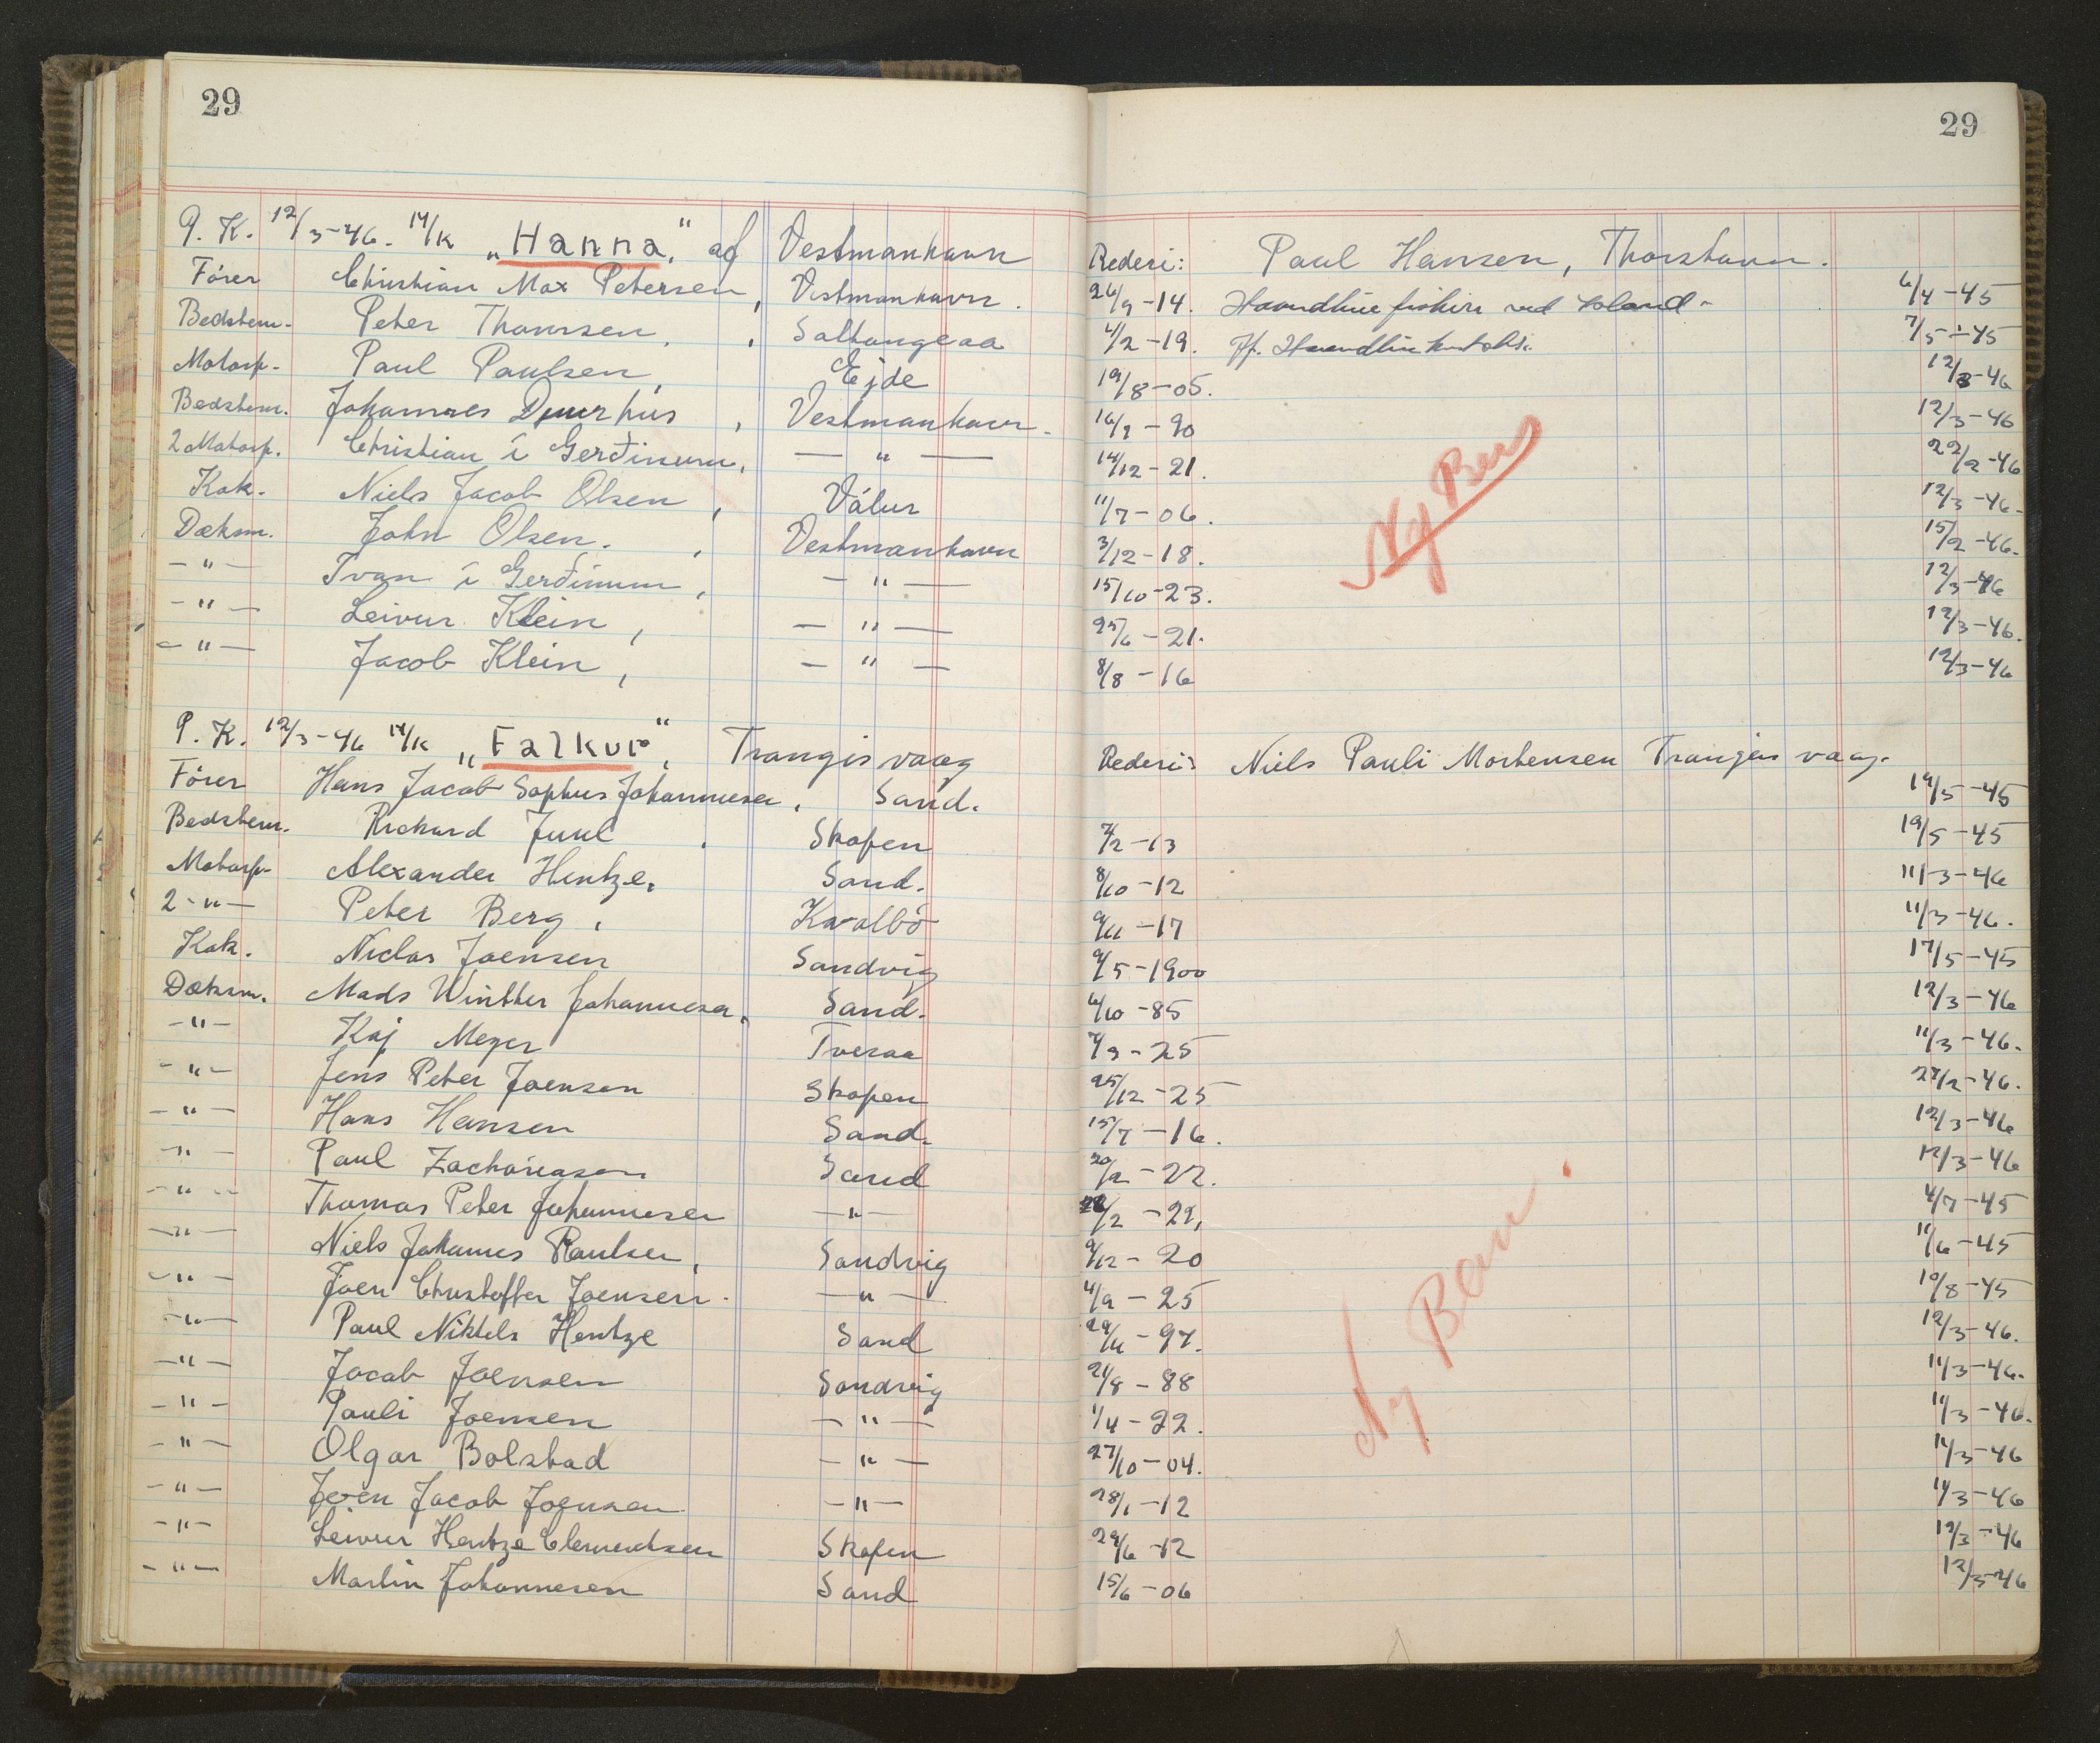 29 29
P. K. 12/3-46. M/K „Hanna," af Vestmanhavn Rederi: Paul Hansen, Thorshavn.
Förer Christian Max Petersen, Vestmanhavn. 26/9-14. Haandlinefiskeri ved Island 6/4-45
Bedstem. Peter Thomsen, Saltangeaa 4/2-19. Pf. 7/5-45
Motorp. Paul Paulsen, Ejde 19/8-05. 12/3-46
Bedstem. Johannes Duurhus, Vestmanhavn. 16/9-90 12/3-46
2 Motorp. Christian í Gerðinum, — " — 14/12-21. 22/2-46
Kok. Niels Jacob Olsen, Válur 11/7-06. 12/3-46.
Dæksm. John Olsen, Vestmanhavn 3/12-18. 15/2-46.
— " — Ivan í Gerðinum, — " — 15/10-23. 12/3-46
— " — Leivur Klein, — " — 25/6-21. 12/3-46.
— " — Jacob Klein, — " — 8/8-16 12/3-46
Ny
P. K. 12/3-46 M/K „Falkur", Trangisvaag Rederi: Niels Pauli Mortensen Trangisvaag.
Förer Hans Jacob Sophus Johannesen, Sand. 19/5-45
Bedstem. Rickard Juul, Skopen 7/2-13 19/5-45
Motorp. Alexander Hentze, Sand. 8/10-12 11/3-46
2 - " — Peter Berg, Kvalbö 9/11-17 11/3-46.
Kok. Niclas Joensen Sandvig 9/5-1900 17/5-45
Dæksm. Mads Winther Johannesen, Sand. 6/10-85 12/3-46
— " — Kaj Meyer Tveraa 7/9-25 11/3-46.
— " — Jens Peter Joensen Skopen 25/12-25 27/2-46.
— " — Hans Hansen Sand. 15/7-16. 12/3-46
— " — Paul Zachariasen Sand 20/2-22. 12/3-46
— " — Thomas Peter Johannesen — " — 4/7-45
— " — Niels Johannes Paulsen, Sandvig 9/12-20 11/6-45
— " — Joen Christoffer Joensen. — " — 4/9-25 10/8-45
— " — Paul Niklels Hentze Sand 29/11-97. 12/3-46.
— " — Jacob Joensen Sandvig 21/8-88 11/3-46.
— " — Pauli Joensen — " — 1/4-22. 11/3-46.
— " — Olgar Bolstad — " — 27/10-04. 11/3-46
— " — Joen Jacob Joensen — " — 28/1-12 11/3-46
— " — Leivur Hentze Clementsen Skopen 29/6-12 12/3-46
— " — Martin Johannesen Sand 15/6-06 12/3-46
Ny